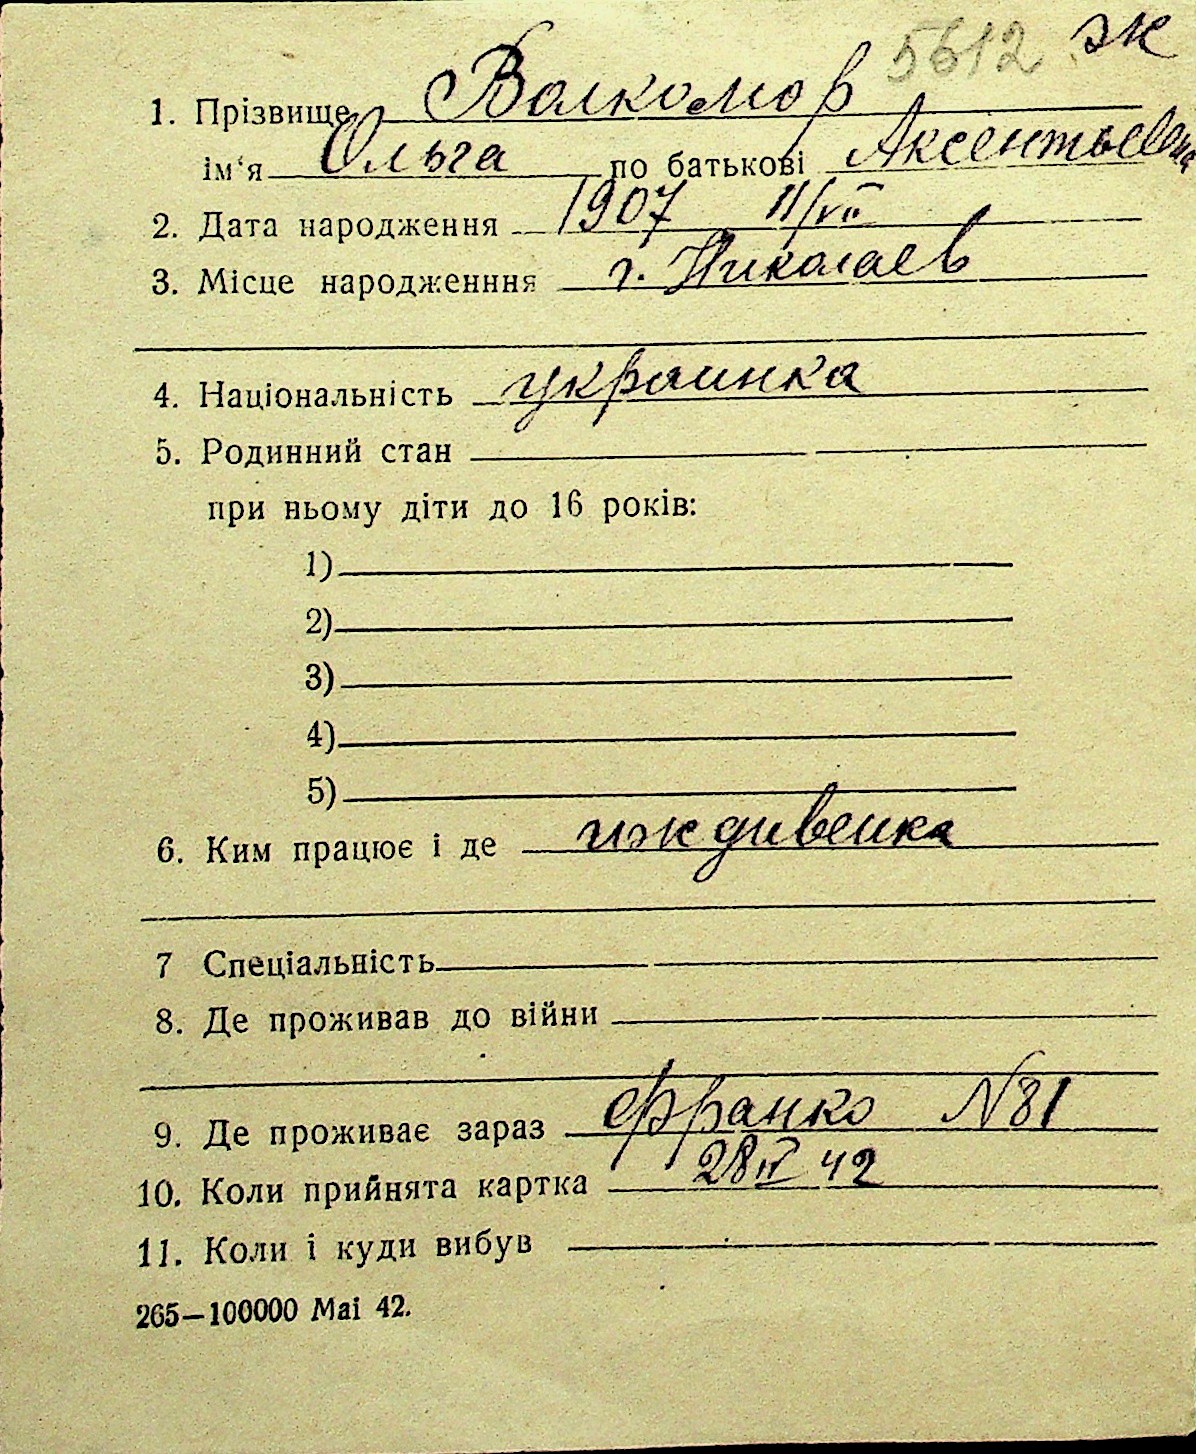 5612 ж
1. Прізвище Волкомор
ім‘я Ольга по батькові Аксентьевна
2. Дата народження 1907 11/VII
3. Місце народженння г. Николаев
4. Національність украинка
5. Родинний стан
при ньому діти до 16 років:
1)
2)
3)
4)
5)
6. Ким працює і де иждивенка
7 Спеціальність
8. Де проживав до війни
9. Де проживає зараз Франко N81
10. Коли прийнята картка 28 IV 42
11. Коли і куди вибув
265—100000 Mai 42.